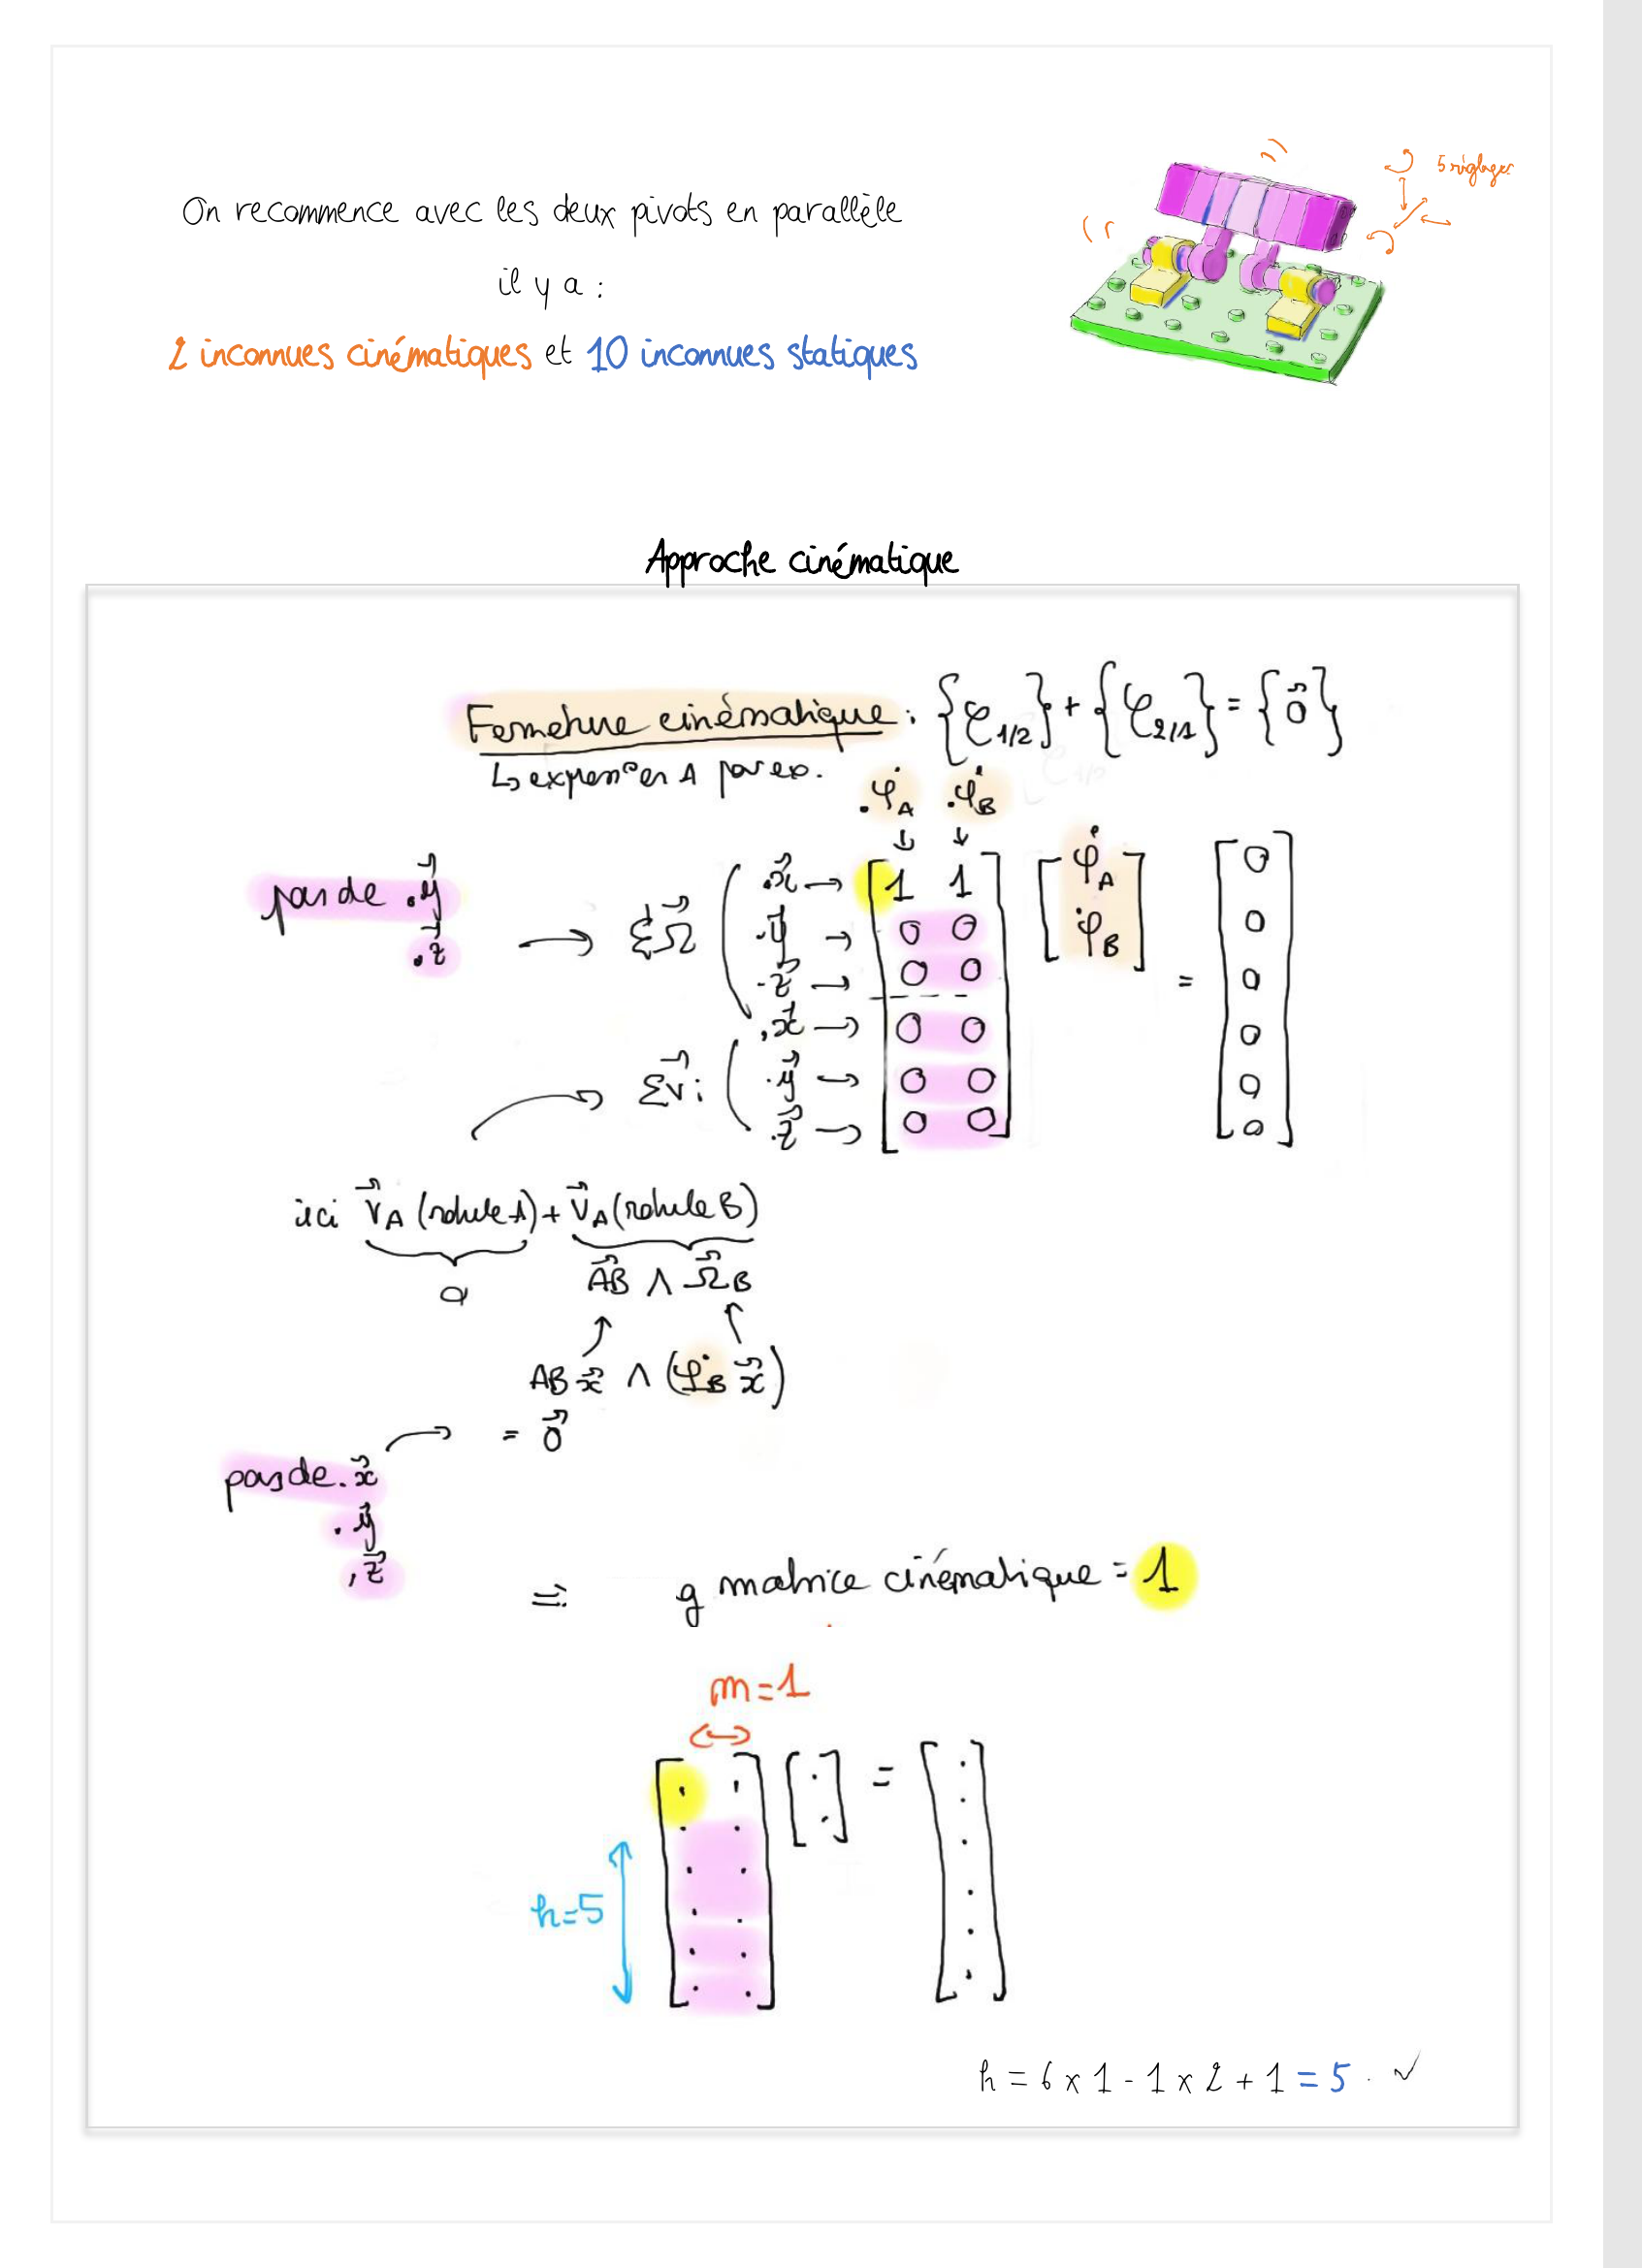 On recommence avec les deux pivots en parallèle
il y a :
2 inconnues cinématiques et 10 inconnues statiques
5 réglages
Approche cinématique
Fermeture cinématique : {𝒱1/2} + {𝒱2/1} = {0⃗}
↳ expression en A par ex.
.φ̇A .φ̇B
↓ ↓
pas de .y⃗
.z⃗
→ ΣΩ⃗ ( .x⃗ → [ 1 1 ] [ φ̇A ] = [ 0 ]
.y⃗ → 0 0 [ φ̇B ] 0
.z⃗ → 0 0 0
.x⃗ → 0 0 0
ΣV⃗ : ( .y⃗ → 0 0 0
.z⃗ → 0 0 0
ici V⃗A (rotule A) + V⃗A (rotule B)
0 AB⃗ ∧ Ω⃗B
AB x⃗ ∧ (φ̇B x⃗)
= 0⃗
pas de .x⃗
.y⃗
.z⃗
⇒ rg matrice cinématique = 1
m=1
h=5
h = 6 x 1 - 1 x 2 + 1 = 5 . ✓